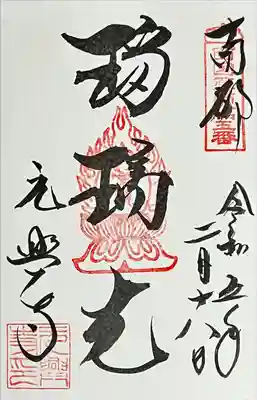 南都
令和五年
二月十八日
瑠璃光
元興寺